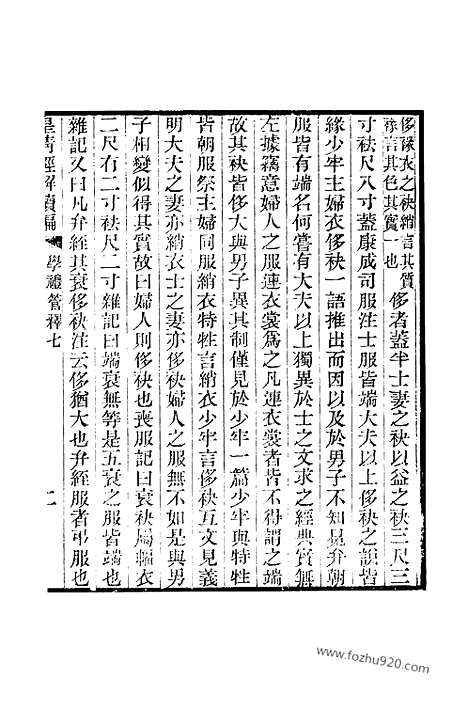 侈褖衣之袂綃言其質
褖言其色其實一也
侈者蓋半士妻之袂以益之袂三尺三
寸袪尺八寸蓋康成司服注士服皆端大夫以上侈袂之說皆
緣少牢主婦衣侈袂一語推出而因以及於男子不知冕弁朝
服皆有端名何嘗有大夫以上獨異於士之文求之經典實無
左據竊意婦人之服連衣裳爲之凡連衣裳者皆不得謂之端
故其袂皆侈大與男子異其制僅見於少牢一篇少牢與特牲
皆朝服祭主婦同服綃衣特牲言綃衣少牢言侈袂互文見義
明大夫之妻亦綃衣士之妻亦侈袂婦人之服無不如是與男
子相變似得其實故曰婦人則侈袂也喪服記曰袂屬幅衣
二尺有二寸袪尺二寸雜記曰端衰無等是五衰之服皆端也
雜記又曰凡弁絰其衰侈袂注云侈猶大也弁絰服者弔服也
皇清經解續編
學禮管釋七
二
www.fozhu920.com